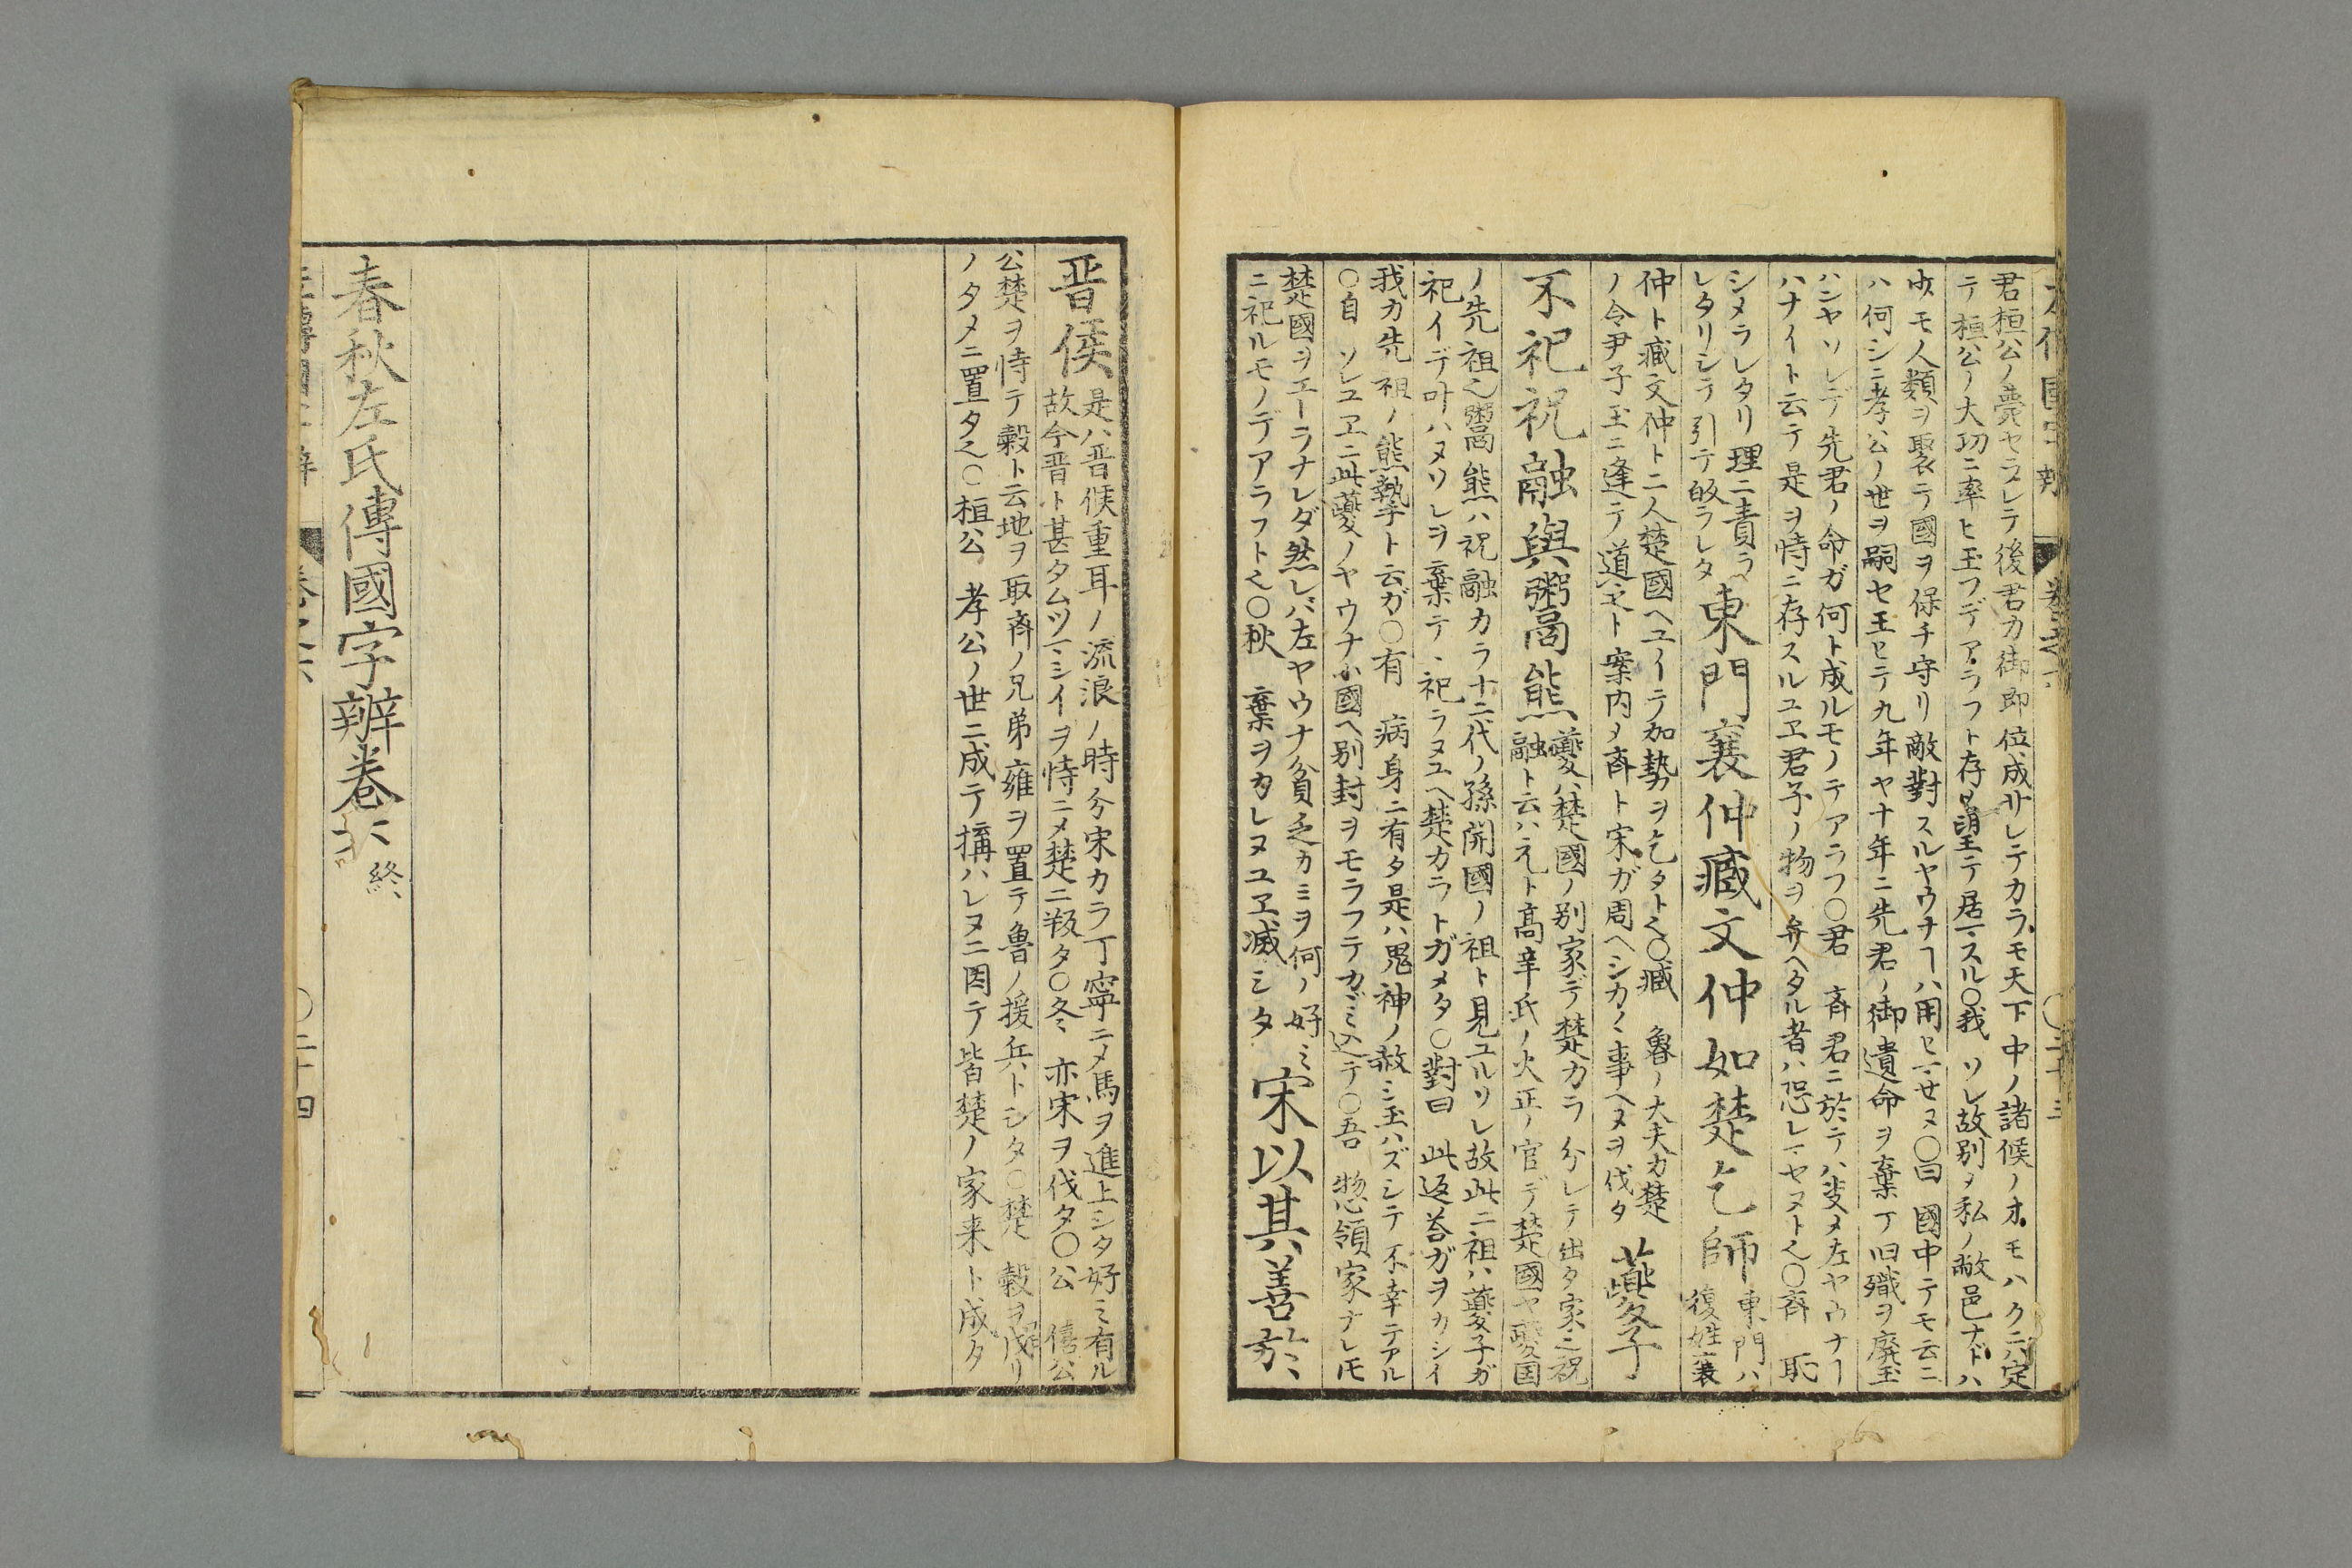 君桓公ノ薨セラレテ後君カ御即位成サレテカラモ天下中ノ諸候ノオモハクニ六定
テ桓公ノ大功ニ率ヒ玉フデアラフト存
𪜈モ人類ヲ聚テ國ヲ保チ守リ敵對スルヤウナヿハ用ヒマセヌ○曰 國中テモ云ニ
ハ何シニ孝公ノ世ヲ嗣セ玉ヒテ九年ヤ十年ニ先君ノ御遺命ヲ棄テ旧職ヲ廃玉
ハンヤソレデ先君ノ命ガ何ト成ルモノテアラフ○君 斉君ニ於テハ
ハナイト云テ是ヲ恃ニ存スルユヱ君子ノ物ヲ弁ヘタル者ハ恐レマヤヌト也○斉 恥
シメラレタリ理ニ責ラ
レタリシテ引テ皈ラレタ
東門襄仲臧文仲如楚乞師
東門ハ
復姓襄
仲ト臧文仲ト二人楚國ヘユイテ加勢ヲ乞タト也○臧 魯ノ大夫カ楚
ノ令尹子玉ニ逢テ道之ト案内メ斉ト宋ガ周ヘシカ〳〵事ヘヌヲ伐タ
夔子
不祀祝融與鬻熊
夔ハ楚國ノ別家デ楚カラ分レテ出タ家也祝
融ト云ハ元ト高辛氏ノ火正ノ官デ楚國ヤ夔国
ノ先祖也鬻熊ハ祝融カラ十二代ノ孫開國ノ祖ト見ユルソレ故此二祖ハ夔子ガ
祀イデ叶ハヌソレヲ棄テヽ祀ラヌユヘ楚カラトガメタ○對曰 此返荅ガヲカシイ
我カ先祖ノ熊摯ト云ガ○有 病身ニ有タ是ハ鬼神ノ赦シ玉ハズシテ不幸テアル
○自 ソレユヱニ此夔ノヤウナ小國ヘ別封ヲモラフテカヾミ込テ○吾 惣領家ナレ𪜈
楚國ヲエーラナレダ然レバ左ヤウナ貧乏カミヲ何ノ好ミ
ニ祀ルモノデアラフト也○秋 棄ヲカレヌユヱ滅シタ
宋以其善於
晋侯
是ハ晋候重耳ノ流浪ノ時分宋カラ丁寧ニメ馬ヲ進上シタ好ミ有ル
故今晋ト甚タムツマシイヲ恃ニメ楚ニ叛タ○冬 亦宋ヲ伐タ○公 僖公
公楚ヲ恃テ穀ト云地ヲ取斉ノ兄弟雍ヲ置テ魯ノ援兵トシタ○楚 穀ヲ戍リ
ノタメニ置タ也○桓公 孝公ノ世ニ成テ搆ハレヌニ因テ皆楚ノ家来ト成タ
春秋左氏傳國字辨巻六 終